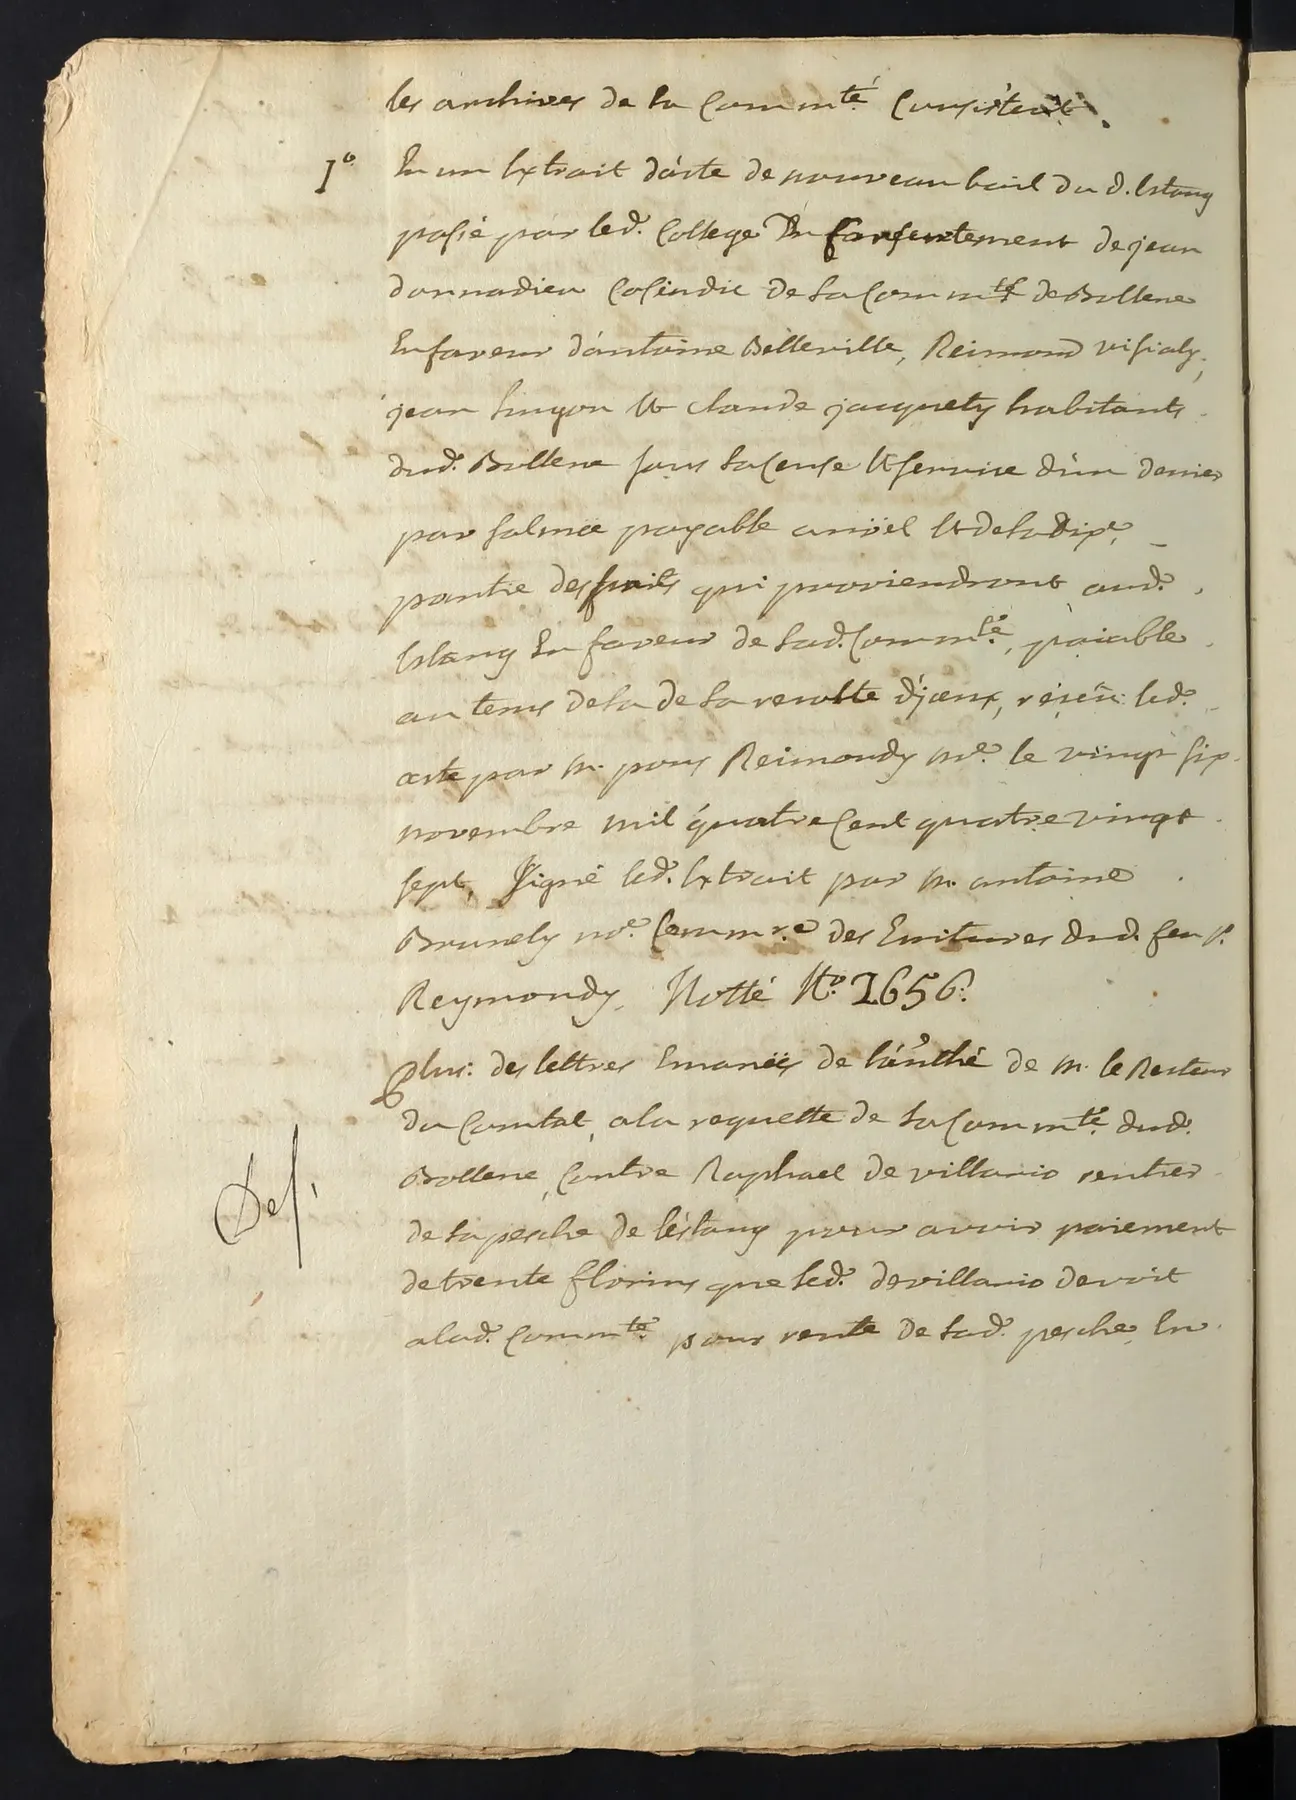 les archives de la Comm.té Consistent.
1.º En un Extrait d'acte de nouveau bail du d. Estang
passé par led. College Du Consentement de jean
donnadieu Cosindic de la Comm.té de Bollene
En faveur d'antoine Belleville, Reimond visialy,
jean Suyon Et Claude jacquety habitants
dud. Bollene sous la Cense Et service d'un denier
par salmée payable a noël Et de la dix.e
partie des fruits qui proviendront aud.
Estang En faveur de lad. Comm.té, païable
au tems de la de la recolte d'iceux, reçeu led.
acte par m. pons Reimondy no.e le vingt six
novembre mil quatre Cent quatre vingt
sept, Signé led. Extrait par m. antoine
Brunely no.e Comm.re des Ecritures dud. feu P.
Reymondy. Notté N.º 1656.
Plus: des lettres Emanées de l'auth.é de m. le Recteur
du Comtat, a la requette de la Comm.té dud.
Bollene, Contre Raphael de villario rentier
de la pesche de l'éstang pour avoir paiement
de trente florins que led. de villario devoit
a lad. Comm.té pour rente de lad. pesche, En